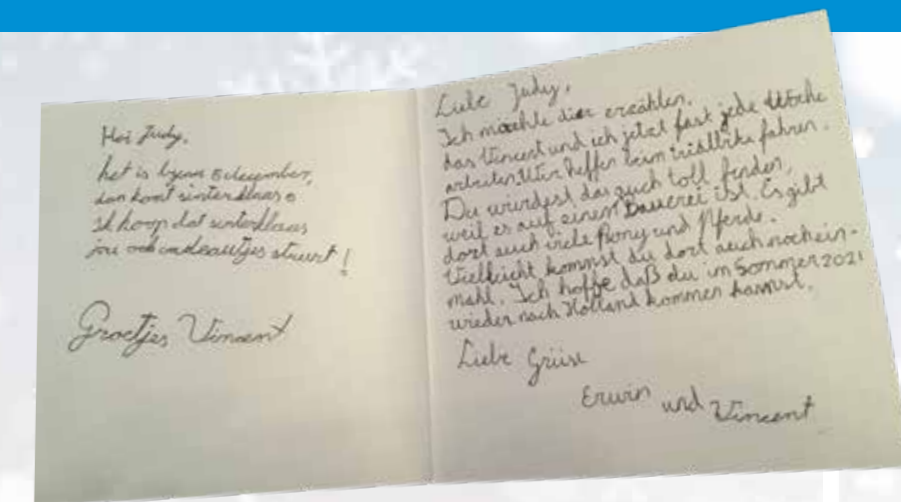 Hoi Judy,
het is byna 5 december,
dan komt sinterklaas
Ik hoop dat sinterklaas
jou ook cadeautjes stuurt!
Groetjes Vincent
Liebe Judy,
Ich möchte dir erzählen,
das Vincent und ich jetzt fast jede Woche
arbeiten. Wir helfen beim fahren.
Du würdest das auch toll finden,
weil es auf einem Bauerei ist. Es gibt
dort auch viele Pony und Pferde.
Vielleicht kommst du dort auch noch ein-
mahl. Ich hoffe daß du im Sommer 2021
wieder nach Holland kommen kannst.
Liebe Grüise
Erwin und Vincent